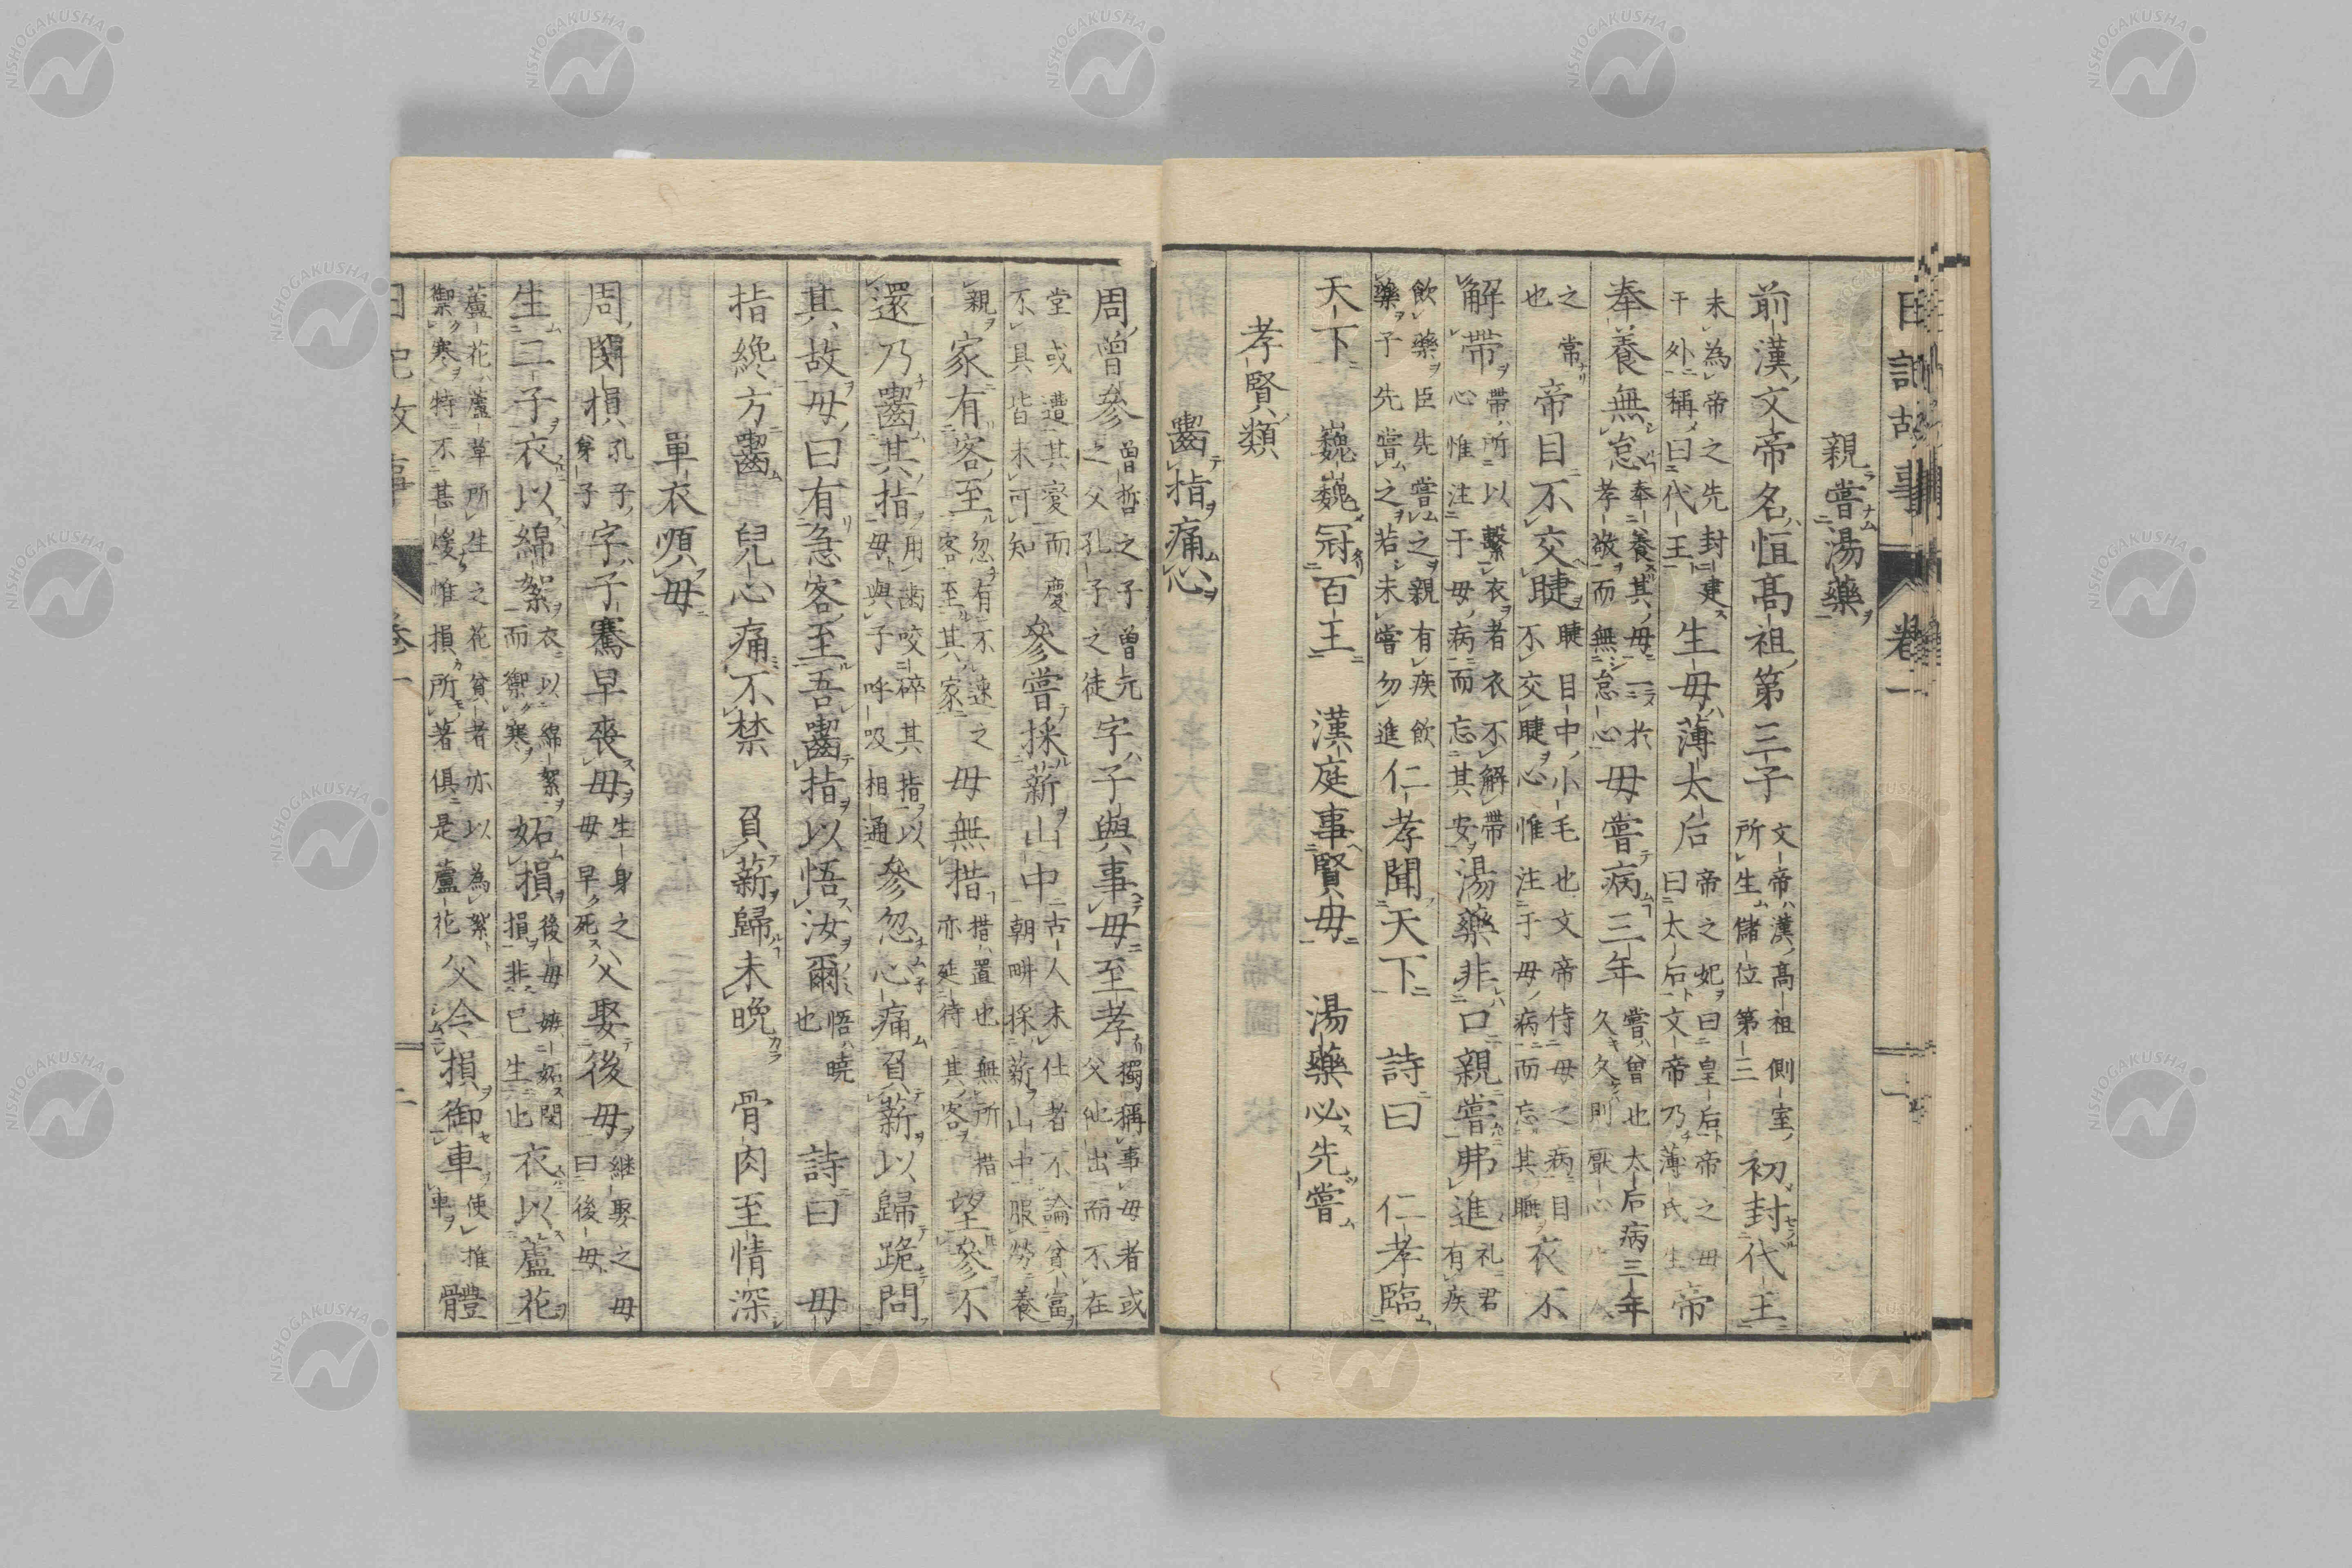 日記故事 卷一 二
親嘗湯藥
前漢文帝名恒高祖第三子 文帝漢高祖側室所生儲位第三 初封代王
未為帝之先封建干外稱曰代王 生母薄太后 帝之妃曰皇后帝之母曰太后文帝乃薄氏生 帝
奉養無怠 奉養其母一於孝敬而無怠心 母嘗病三年 嘗曾也太后病三年久久則厭心
之常也 帝目不交睫 睫目中小毛也文帝侍母之病目不交睫心惟注于母病而忘其睡 衣不
解帶 帶所以繫衣者衣不解帶心惟注于母病而忘其安 湯藥非口親嘗弗進 礼君有疾
飲藥臣先嘗之親有疾飲藥子先嘗之若未嘗勿進 仁孝聞天下 詩曰 仁孝臨
天下 巍巍冠百王 漢庭事賢母 湯藥必先嘗
孝賢類
齧指痛心
周曾參 曾晳之子曾元之父孔子之徒 字子輿事母至孝 獨稱事母者或父他出而不在
堂或遭其變而慶不具皆未可知 參嘗採薪山中 古人未仕者不論貧富朝畊採薪山中服勞養
親 家有客至 忽有不速之客至其家 母無措 措置也無所措亦延待其客 望參不
還乃齧其指 用齒咬碎其指以母與子呼吸相通 參忽心痛負薪以歸跪問
其故母曰有急客至吾齧指以悟汝爾 悟曉也 詩曰 母
指纔方齧 兒心痛不禁 負薪歸未晚 骨肉至情深
單衣順母
周閔損 孔子弟子 字子騫早喪母 生身之母母早死 父娶後母 継娶之母曰後母
生二子衣以綿絮 衣以綿絮而禦寒 妬損 後母嫉妬閔損非己生也 衣以蘆花
蘆花蘆草所生之花貧者亦以為絮禦寒特不甚煖惟損所著俱是蘆花 父令損御車 使推車 體
日記故事 卷一 二